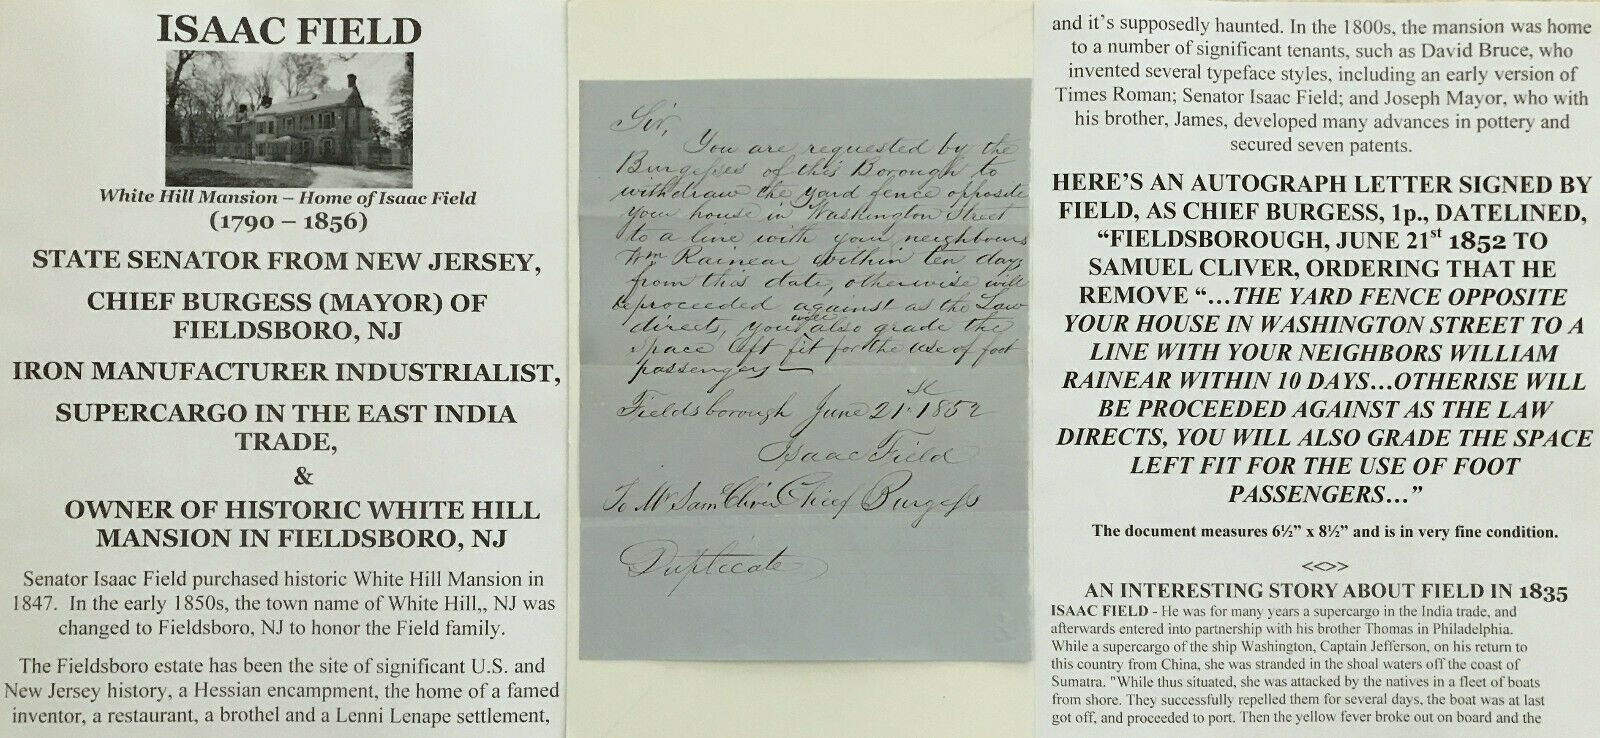 ISAAC FIELD
White Hill Mansion – Home of Isaac Field
(1790 – 1856)
STATE SENATOR FROM NEW JERSEY,
CHIEF BURGESS (MAYOR) OF
FIELDSBORO, NJ
IRON MANUFACTURER INDUSTRIALIST,
SUPERCARGO IN THE EAST INDIA
TRADE,
&
OWNER OF HISTORIC WHITE HILL
MANSION IN FIELDSBORO, NJ
Senator Isaac Field purchased historic White Hill Mansion in
1847. In the early 1850s, the town name of White Hill,, NJ was
changed to Fieldsboro, NJ to honor the Field family.
The Fieldsboro estate has been the site of significant U.S. and
New Jersey history, a Hessian encampment, the home of a famed
inventor, a restaurant, a brothel and a Lenni Lenape settlement,
Sir,
You are requested by the
Burgesses of this Borough to
withdraw the yard fence opposite
your house in Washington Street
to a line with your neighbours
Wm Rainear within ten days
from this date, otherwise will
be proceeded against as the Law
directs, you will also grade the
space left fit for the use of foot
passengers —
Fieldsborough June 21st 1852
Isaac Field
To Mr Saml Cliver Chief Burgess
Duplicate
and it's supposedly haunted. In the 1800s, the mansion was home
to a number of significant tenants, such as David Bruce, who
invented several typeface styles, including an early version of
Times Roman; Senator Isaac Field; and Joseph Mayor, who with
his brother, James, developed many advances in pottery and
secured seven patents.
HERE'S AN AUTOGRAPH LETTER SIGNED BY
FIELD, AS CHIEF BURGESS, 1p., DATELINED,
“FIELDSBOROUGH, JUNE 21st 1852 TO
SAMUEL CLIVER, ORDERING THAT HE
REMOVE “…THE YARD FENCE OPPOSITE
YOUR HOUSE IN WASHINGTON STREET TO A
LINE WITH YOUR NEIGHBORS WILLIAM
RAINEAR WITHIN 10 DAYS…OTHERISE WILL
BE PROCEEDED AGAINST AS THE LAW
DIRECTS, YOU WILL ALSO GRADE THE SPACE
LEFT FIT FOR THE USE OF FOOT
PASSENGERS…”
The document measures 6½” x 8½” and is in very fine condition.
<<>>
AN INTERESTING STORY ABOUT FIELD IN 1835
ISAAC FIELD - He was for many years a supercargo in the India trade, and
afterwards entered into partnership with his brother Thomas in Philadelphia.
While a supercargo of the ship Washington, Captain Jefferson, on his return to
this country from China, she was stranded in the shoal waters off the coast of
Sumatra. "While thus situated, she was attacked by the natives in a fleet of boats
from shore. They successfully repelled them for several days, the boat was at last
got off, and proceeded to port. Then the yellow fever broke out on board and the